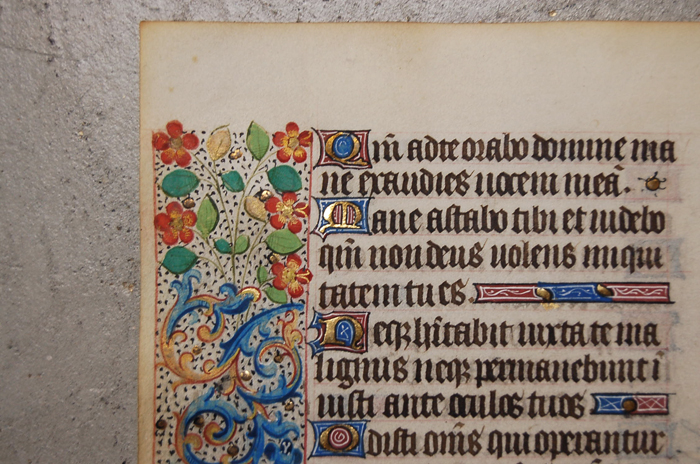 Qm̄ ad te orabo domine ma
ne exaudies uocem meā.
Mane astabo tibi et uidebo
qm̄ non deus uolens iniqui
tatem tu es.
Neqʒ hītabit iuxta te ma
lignus neqʒ permanebunt ī
iusti ante oculos tuos
Odisti om̄s qui operantur